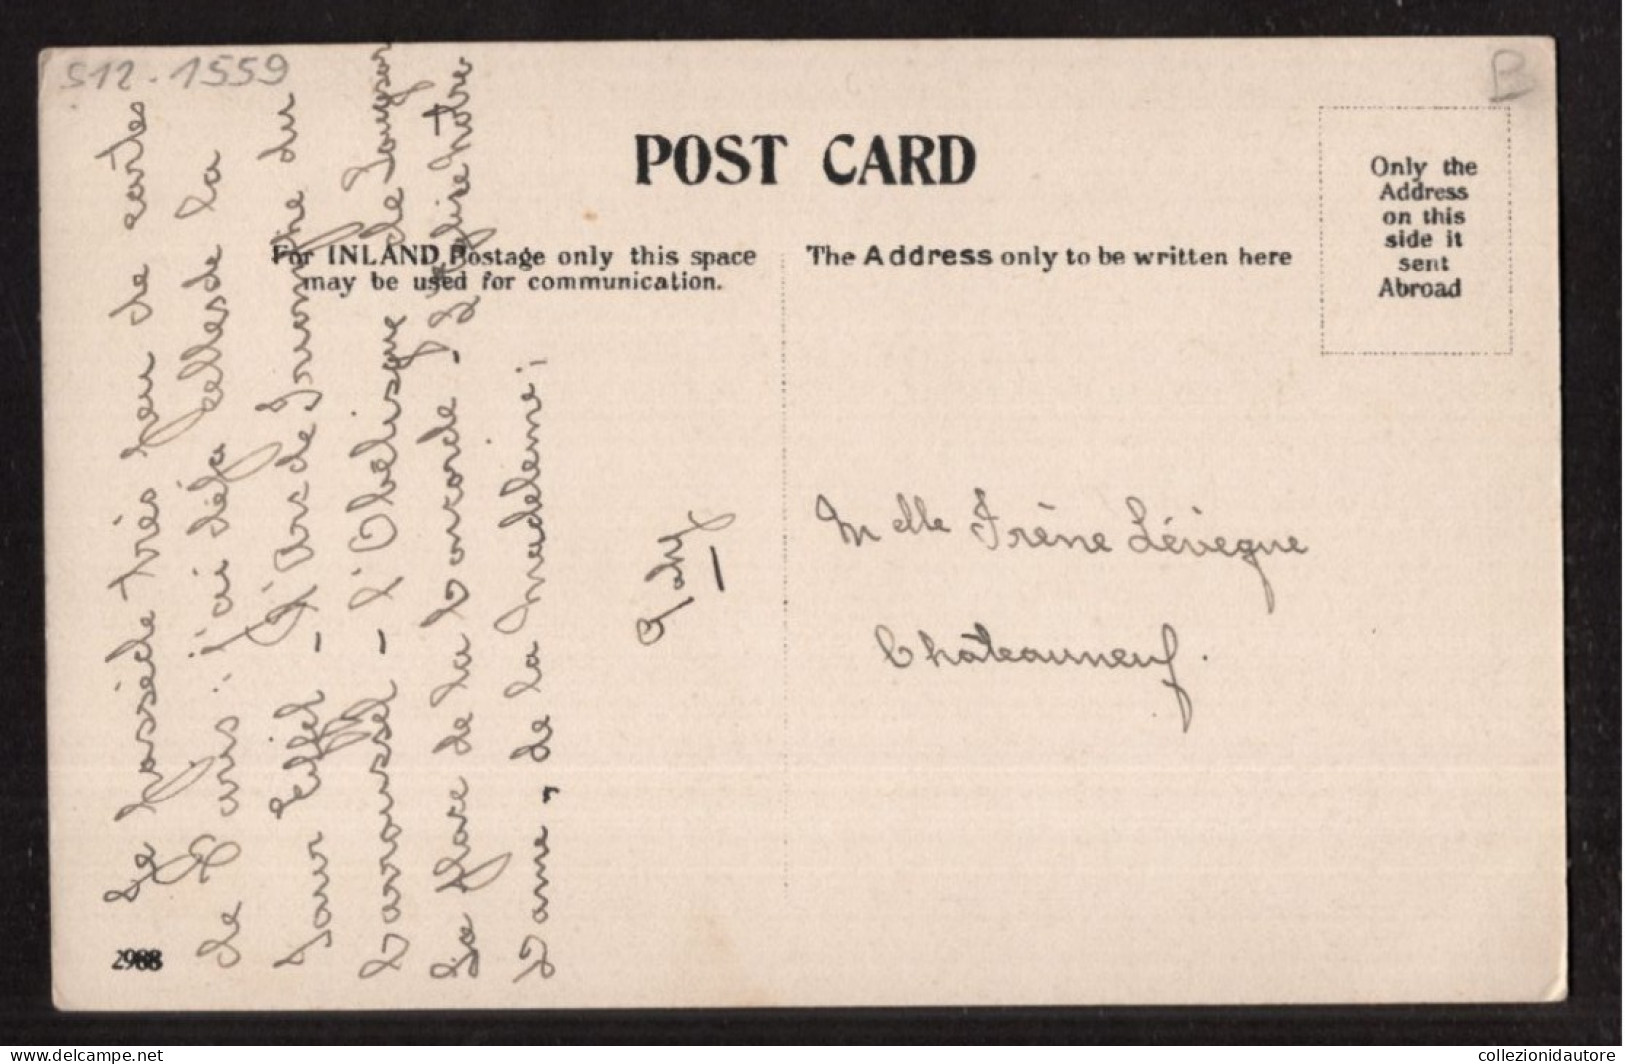 S12 - 1559
B
POST CARD
For INLAND Postage only this space
may be used for communication.
The Address only to be written here
Only the
Address
on this
side it
sent
Abroad
Je possède très peu de cartes
de Paris : j'ai déjà celles de la
Tour Eiffel - L'Arc de Triomphe du
Carroussel - L'Obélisque de Louqsor
La place de la Concorde - L'église Notre
Dame, de la Madeleine ;
Gaby
Melle Irène Lévêque
Châteauneuf.
2988
delcampe.net
collezionidautore